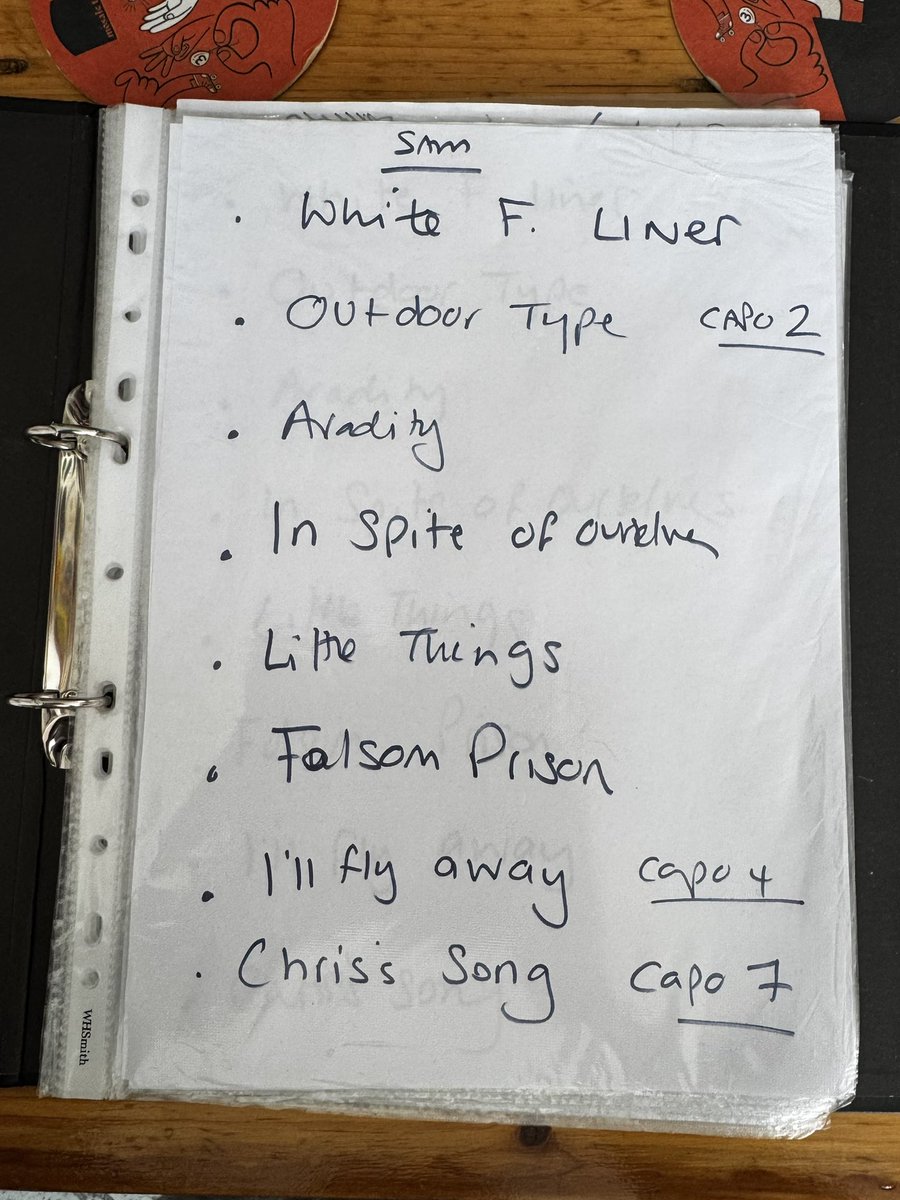 Sam
• White F. Liner
• Outdoor Type CAPO 2
• Aradity
• In Spite of ourselves
• Little Things
• Folsom Prison
• I'll fly away capo 4
• Chris's Song Capo 7
WHSmith